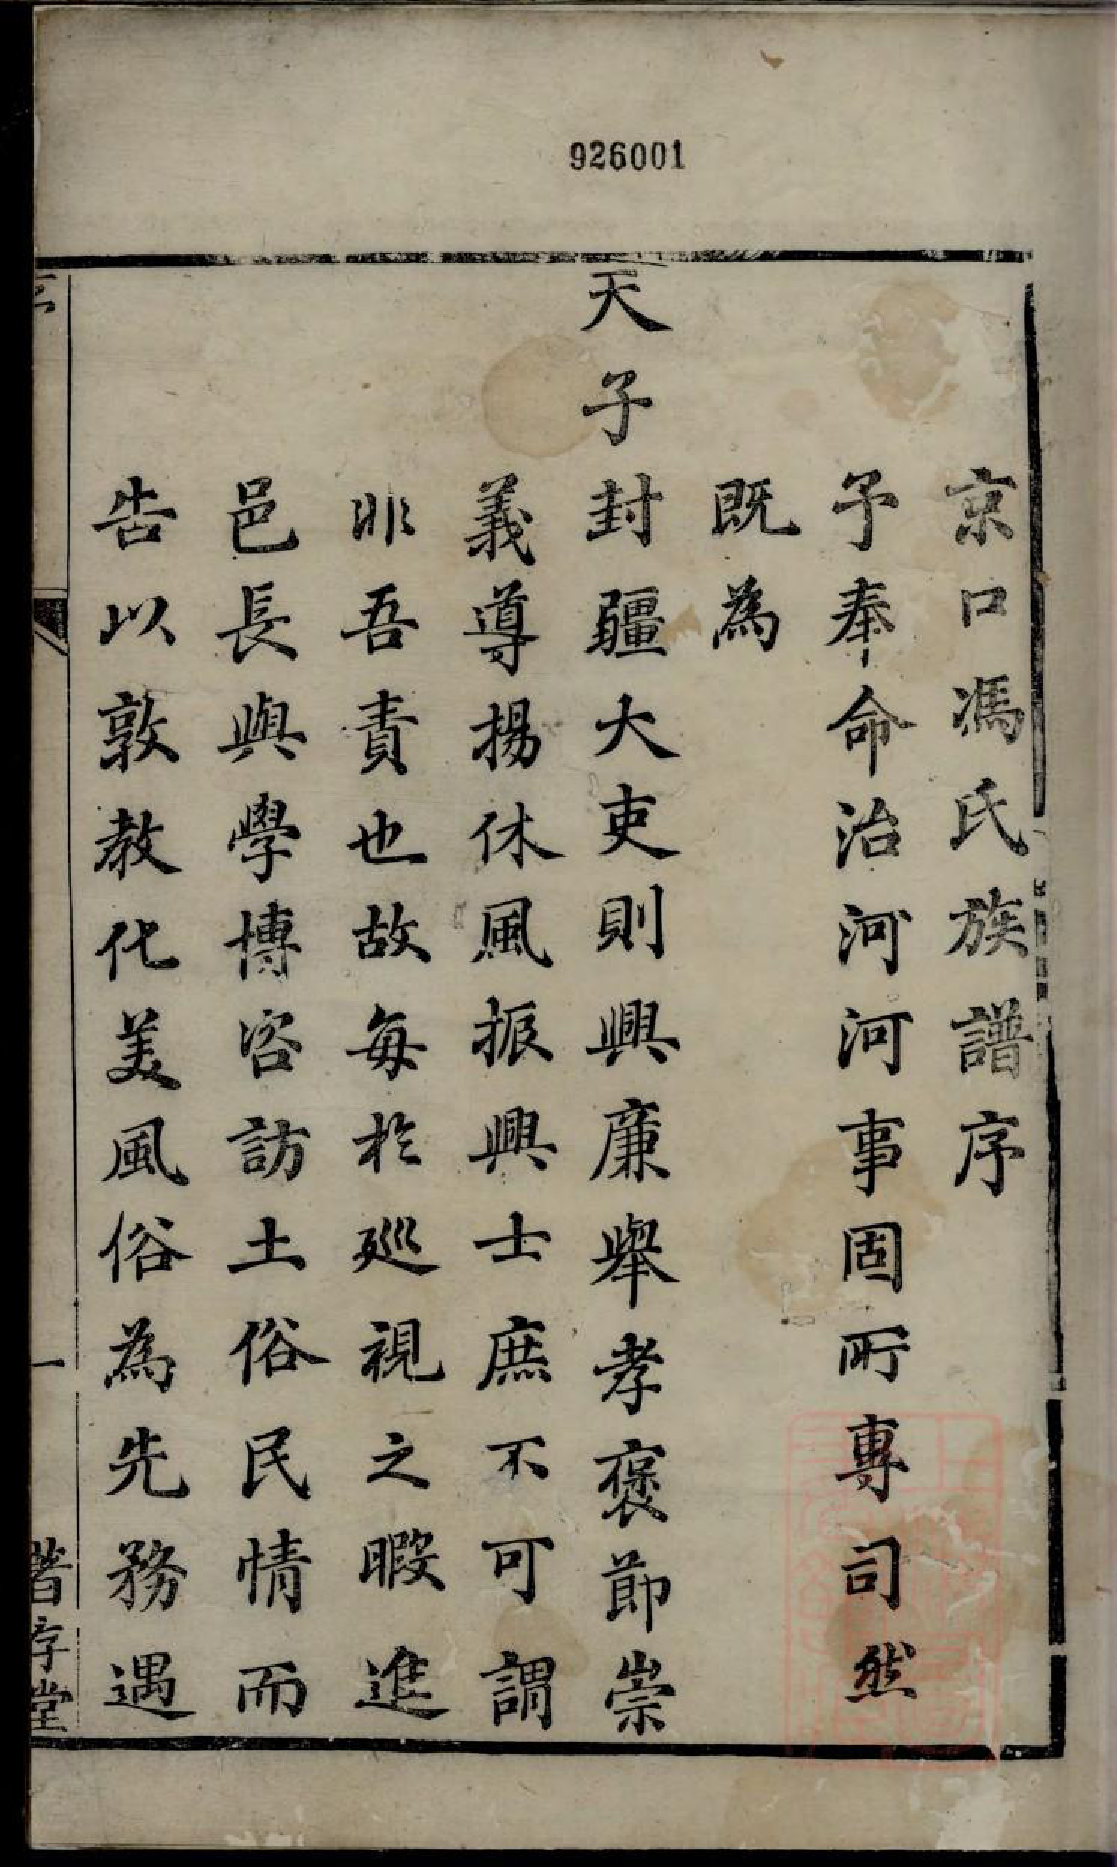 926001
京口馮氏族譜序
予奉命治河河事固所專司然
既為
天子封疆大吏則興廉舉孝褒節崇
義導揚休風振興士庶不可謂
非吾責也故每於巡視之暇進
邑長與學博咨訪土俗民情而
告以敦教化美風俗為先務遇
一